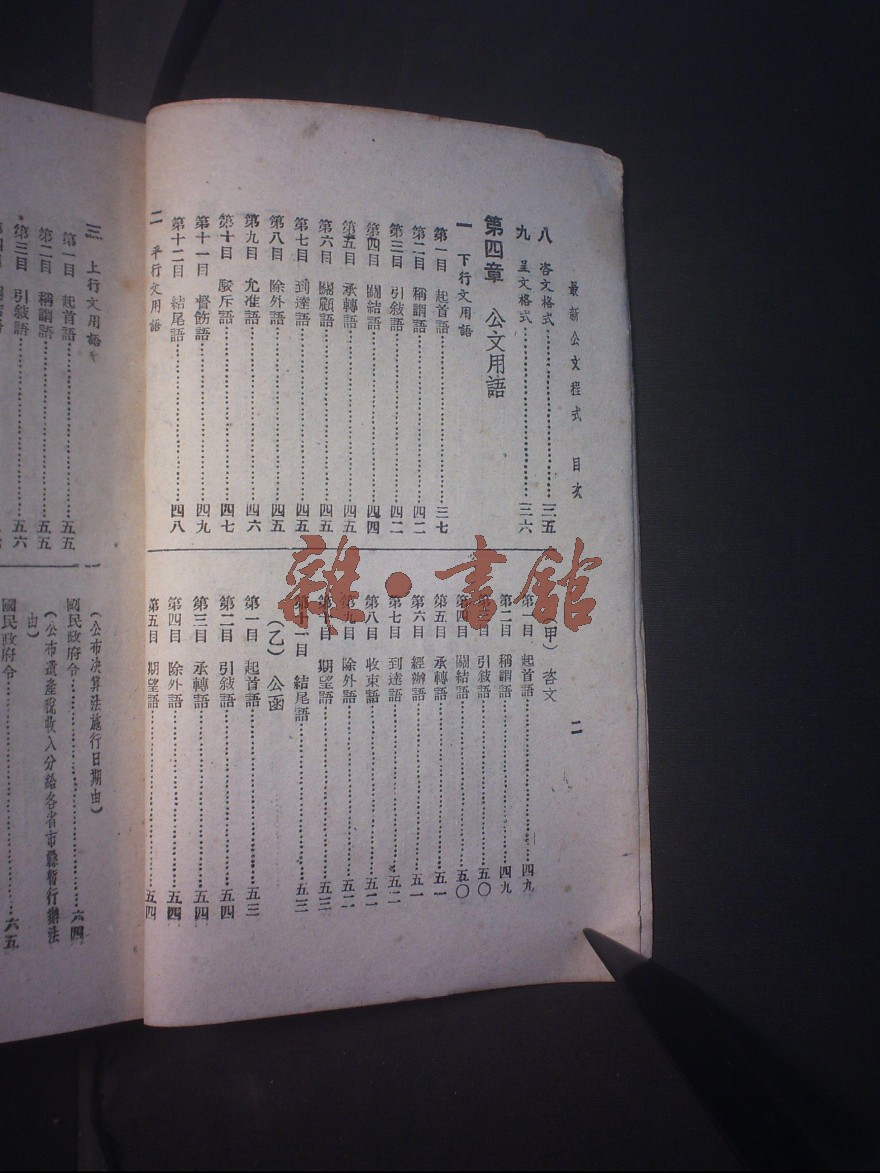 最新公文程式 目次
二
八 咨文格式 三五
九 呈文格式 三六
第四章 公文用語
一 下行文用語
第一目 起首語 三七
第二目 稱謂語 四二
第三目 引敍語 四二
第四目 關結語 四四
第五目 承轉語 四五
第六目 關顧語 四五
第七目 到達語 四五
第八目 除外語 四五
第九目 允准語 四六
第十目 駁斥語 四七
第十一目 督飭語 四九
第十二目 結尾語 四八
二 平行文用語
(甲) 咨文
第一目 起首語 四九
第二目 稱謂語 四九
第三目 引敍語 五〇
第四目 關結語 五〇
第五目 承轉語 五一
第六目 經辦語 五一
第七目 到達語 五二
第八目 收束語 五二
第九目 除外語 五二
第十目 期望語 五三
第十一目 結尾語 五三
(乙) 公函
第一目 起首語 五三
第二目 引敍語 五四
第三目 承轉語 五四
第四目 除外語 五四
第五目 期望語 五四
三 上行文用語
第一目 起首語 五五
第二目 稱謂語 五五
第三目 引敍語 五六
(公布決算法施行日期由)
國民政府令 六四
(公布遺產稅收入分給各省市縣暫行辦法
由)
國民政府令 六五
雜·書館